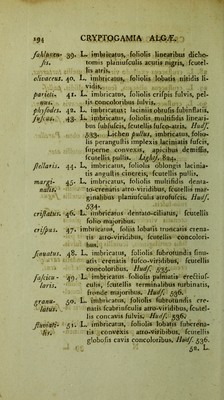 194 CRYPTOGAMIA ALGÆ.
fahlunen- 39. L. imbricatus, foliolis linearibus dicho-
sis. tomis planiusculis acutis nigris, scutel-
lis atris.
olivaceus. 40. L. imbricatus, foliolis lobatis nitidis li-
vidis.
parieti- 41. L. imbricatus, foliolis crispis fulvis, pel-
nus. tis concoloribus fulvis.
physodes. 42. L. imbricatus; laciniis obtusis subinflatis,
fuscus. 43. L. imbricatus, foliolis multifidis lineari-
bus subfuscis, scutellis fusco-atris. Hudf.
533. Lichen pullus, imbricatus, folio-
lis perangustis implexis laciniatis fuscis,
superne convexis, apicibus demissis,
scutellis pullis. Lightf. 824.
stellaris. 44. L. imbricatus, foliolis oblongis lacinia-
tis angustis cinereis; scutellis pullis.
margi- 45. L. imbricatus, foliolis multifidis denta-
nalis. to-crenatis atro-viridibus, scutellis mar-
ginalibus planiusculis atrofuscis. Hudf.
534.
cristatus. 46. L. imbricatus dentato-ciliatus; scutellis
folio majoribus.
crispus. 47. imbricatus, foliis lobatis truncatis crena-
tis atro-viridibus, scutellis concolori-
bus.
sinuatus. 48. L. imbricatus, foliolis subrotundis sinu-
atis crenatis fusco-viridibus, scutellis
concoloribus. Hudf. 535.
fascicu- 49. L. imbricatus foliolis palmatis erectius-
laris. culis, scutellis terminalibus turbinatis,
fronde majoribus. Hudf. 536.
granu- 50. L. imbricatus, foliolis subrotundis cre-
latus. natis scabriusculis atro-viridibus, scutel-
lis concavis fulvis. Hudf. 536.
51. L. imbricatus, foliolis lobatis tubercula-
tis convexis atro-viribibus, scutellis
globosis cavis concoloribus. Hudf. 536.
52. L.